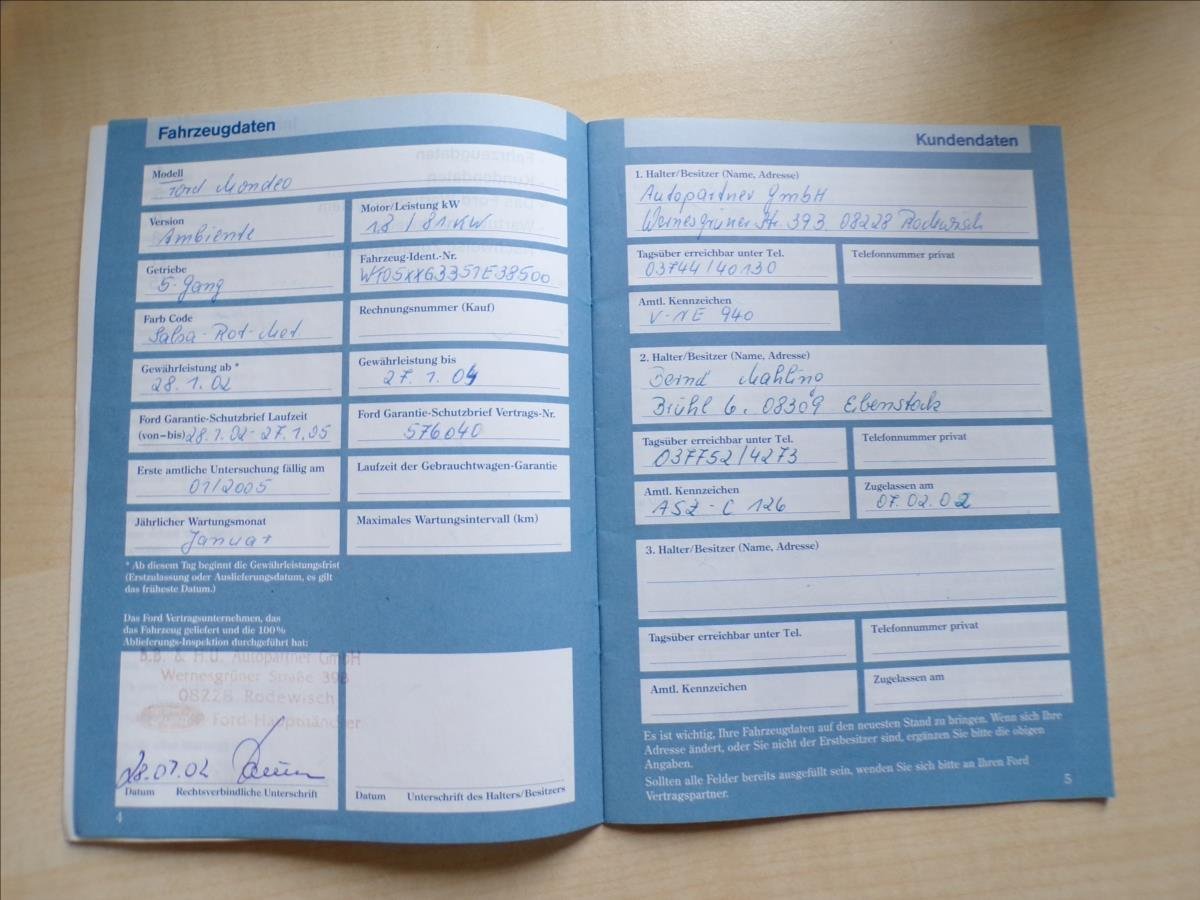 Fahrzeugdaten
Modell
Ford Mondeo
Version
Ambiente
Motor/Leistung kW
1.8 / 81 KW
Getriebe
5-Gang
Fahrzeug-Ident.-Nr.
WF05XXG3351E38500
Farb Code
Salsa-Rot-Met
Rechnungsnummer (Kauf)
Gewährleistung ab *
28.1.02
Gewährleistung bis
27.1.04
Ford Garantie-Schutzbrief Laufzeit
(von–bis) 28.1.02 - 27.1.05
Ford Garantie-Schutzbrief Vertrags-Nr.
576040
Erste amtliche Untersuchung fällig am
01/2005
Laufzeit der Gebrauchtwagen-Garantie
Jährlicher Wartungsmonat
Januar
Maximales Wartungsintervall (km)
* Ab diesem Tag beginnt die Gewährleistungsfrist
(Erstzulassung oder Auslieferungsdatum, es gilt
das früheste Datum.)
Das Ford Vertragsunternehmen, das
das Fahrzeug geliefert und die 100%
Ablieferungs-Inspektion durchgeführt hat:
B.B. & H.U. Autopartner GmbH
Wernesgrüner Straße 39B
08228 Rodewisch
Ford-Haupthändler
28.01.02
Datum Rechtsverbindliche Unterschrift
Datum Unterschrift des Halters/Besitzers
4
Kundendaten
1. Halter/Besitzer (Name, Adresse)
Autopartner GmbH
Wernesgrüner Str. 39B. 08228 Rodewisch
Tagsüber erreichbar unter Tel.
03744/40130
Telefonnummer privat
Amtl. Kennzeichen
V-NE 940
2. Halter/Besitzer (Name, Adresse)
Bernd Mahling
Brühl 6. 08309 Eibenstock
Tagsüber erreichbar unter Tel.
037752/4273
Telefonnummer privat
Amtl. Kennzeichen
ASZ-C 126
Zugelassen am
07.02.02
3. Halter/Besitzer (Name, Adresse)
Tagsüber erreichbar unter Tel.
Telefonnummer privat
Amtl. Kennzeichen
Zugelassen am
Es ist wichtig, Ihre Fahrzeugdaten auf den neuesten Stand zu bringen. Wenn sich Ihre
Adresse ändert, oder Sie nicht der Erstbesitzer sind, ergänzen Sie bitte die obigen
Angaben.
Sollten alle Felder bereits ausgefüllt sein, wenden Sie sich bitte an Ihren Ford
Vertragspartner.
5